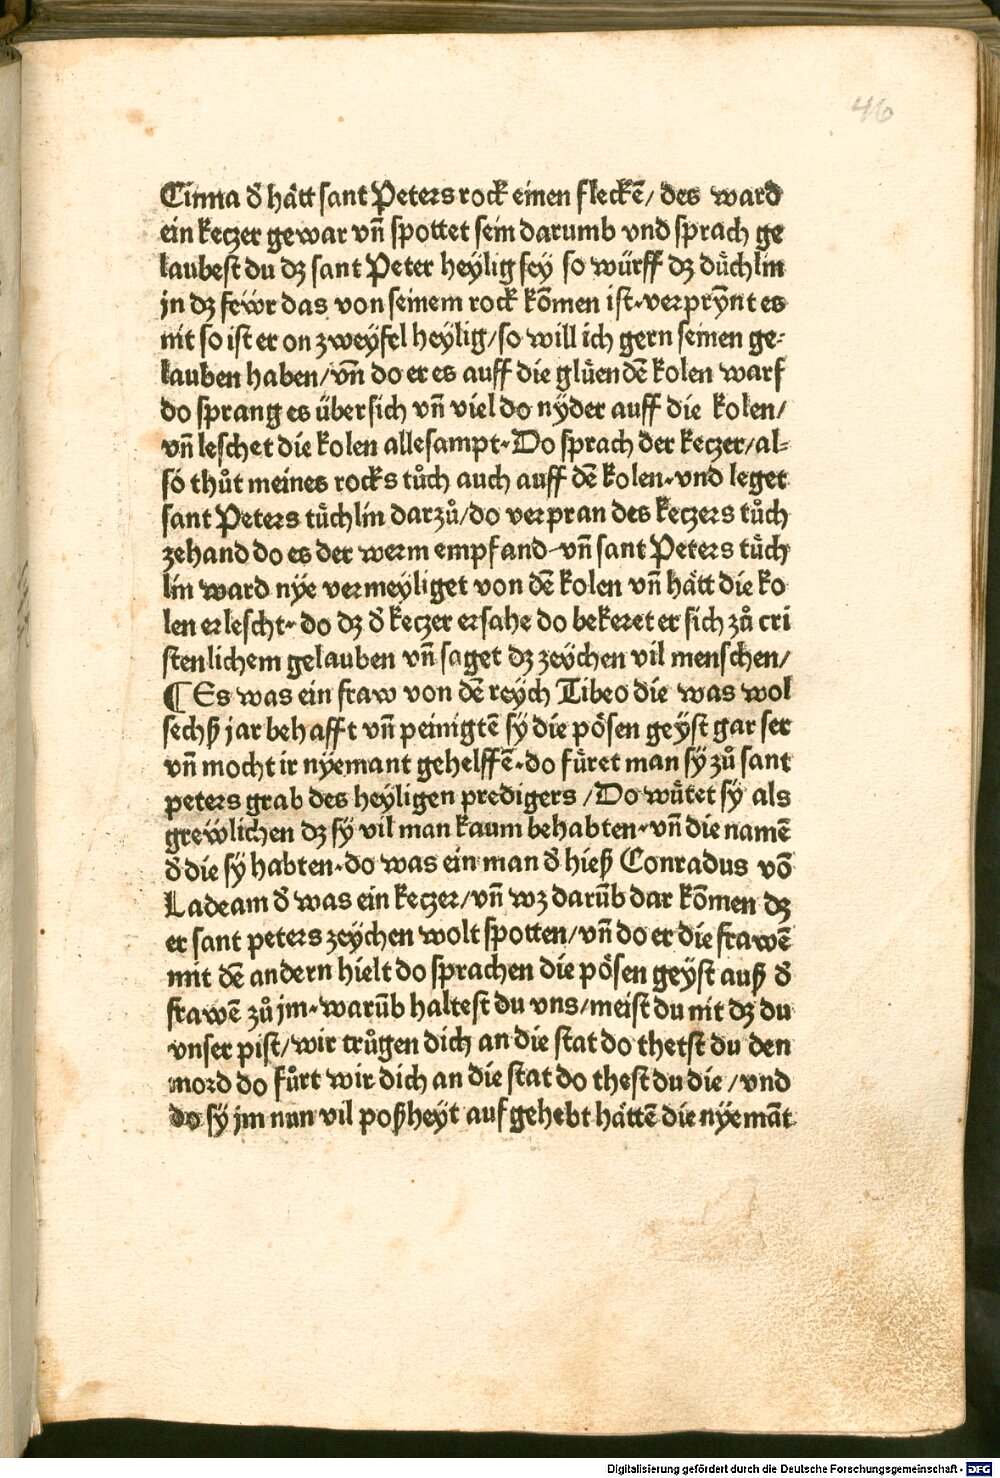 46
Cinna d̕ hått sant Peters rock einen fleckē/ des ward
ein keczer gewar vn̄ spottet sein darumb vnd sprach ge
laubest du dz sant Peter heÿlig seÿ so würff dz důchlin
jn dz feẅr das von seinem rock kōmen ist·verprÿnt es
nit so ist er on zweÿfel heÿlig/so will ich gern seinen ge⸗
lauben haben/vn̄ do er es auff die glůenden̄ kolen warf
do sprang es übersich vn̄ viel do nÿder auff die kolen/
vn̄ leschet die kolen allesampt·Do sprach der keczer/al⸗
so thůt meines rocks tůch auch auff dē kolen·vnd leget
sant Peters tůchlin darzů/do verpran des keczers tůch
zehand do es der werm empfand·vn̄ sant Peters tůch
lin ward nÿe vermeÿliget von dē kolen vn̄ hått die ko
len erlescht· do dz d̕ keczer ersahe do bekeret er sich zů cri
stenlichem gelauben vn̄ saget dz zeÿchen vil menschen/
¶ Es was ein fraw von dē reÿch Tibeo die was wol
sechß jar behafft vn̄ peinigtē sÿ die pösen geÿst gar ser
vn̄ mocht ir nÿemant gehelffē·do fůret man sÿ zů sant
peters grab des heÿligen predigers /Do wůtet sÿ als
greẅlichen dz sÿ vil man kaum behabten·vn̄ die namē
d̕ die sÿ habten·do was ein man d̕ hieß Conradus vō
Ladeam d̕ was ein keczer/vn̄ wz darūb dar kōmen dz
er sant peters zeÿchen wolt spotten/vn̄ do er die frawē
mit dē andern hielt do sprachen die pösen geÿst auß d̕
frawē zů jm·warūb haltest du vns/meist du nit dz du
vnser pist/wir trůgen dich an die stat do thetst du den
mord do fůrt wir dich an die stat do thest du die /vnd
do sÿ jm nun vil poßheÿt aufgehebt håttē die nÿemāt
Digitalisierung gefördert durch die Deutsche Forschungsgemeinschaft - DFG